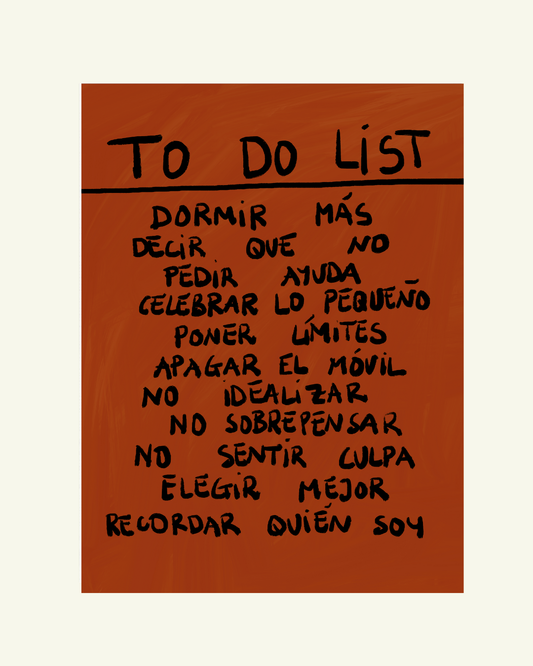 TO DO LIST
DORMIR MÁS
DECIR QUE NO
PEDIR AYUDA
CELEBRAR LO PEQUEÑO
PONER LÍMITES
APAGAR EL MÓVIL
NO IDEALIZAR
NO SOBREPENSAR
NO SENTIR CULPA
ELEGIR MEJOR
RECORDAR QUIÉN SOY